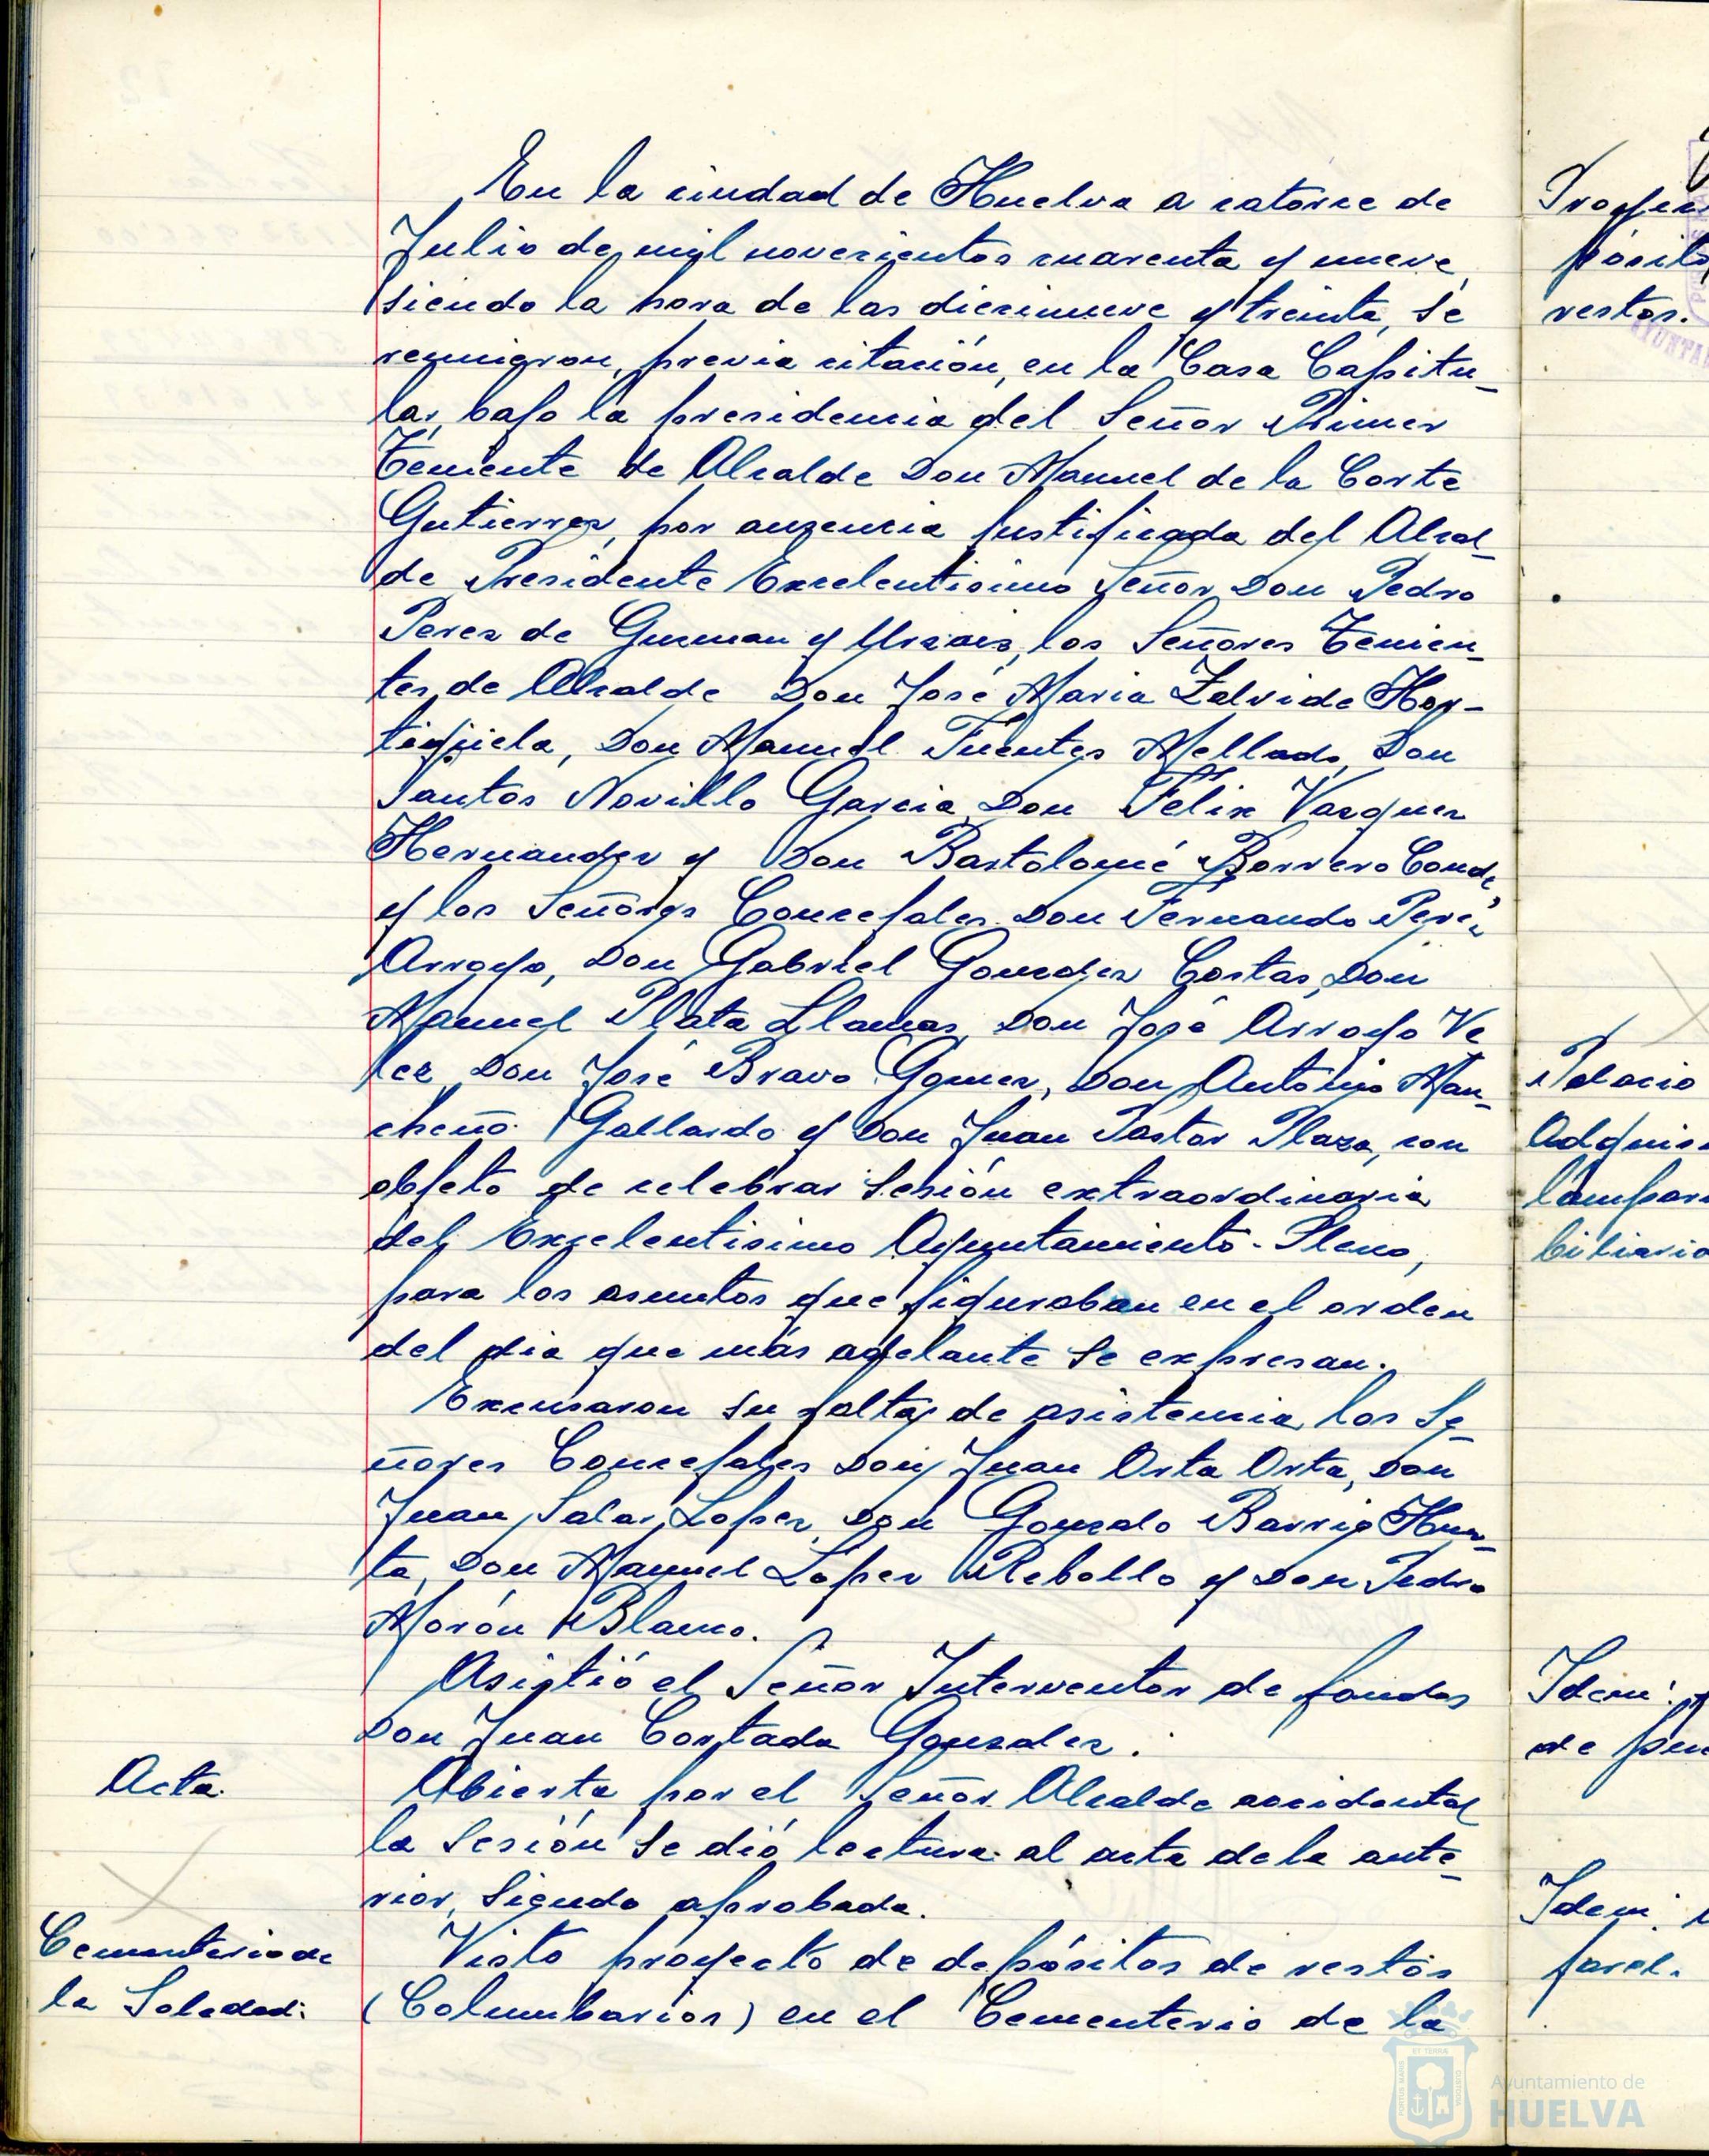 En la ciudad de Huelva a catorce de
Julio de mil novecientos cuarenta y nueve,
siendo la hora de las diecinueve y treinta, se
reunieron, previa citación, en la Casa Capitu-
lar, bajo la presidencia del Señor Primer
Teniente de Alcalde Don Manuel de la Corte
Gutierrez, por ausencia justificada del Alcal-
de Presidente Excelentisimo Señor Don Pedro
Perez de Guzman y Urzaiz, los Señores Tenien-
tes de Alcalde Don José Maria Zalvide Hor-
tigüela, Don Manuel Fuentes Mellado, Don
Santos Novillo Garcia, Don Felix Vazquez
Hernandez y Don Bartolomé Borrero Conde
y los Señores Concejales Don Fernando Perez
Arroyo, Don Gabriel Gonzalez Costas, Don
Manuel Plata Llamas, Don José Arroyo Ve
lez, Don José Bravo Gomez, Don Antonio Man-
cheño Gallardo y Don Juan Pastor Plaza, con
objeto de celebrar Sesión extraordinaria
del Excelentisimo Ayuntamiento-Pleno,
para los asuntos que figuraban en el orden
del dia que más adelante se expresan.
Excusaron su falta de asistencia los Se-
ñores Concejales Don Juan Orta Orta, Don
Juan Salas Lopez, Don Gonzalo Barrig Huer-
ta, Don Manuel López Rebollo y Don Pedro
Morón Blanco.
Asistió el Señor Interventor de fondos
Don Juan Cortada Gonzalez.
Acta.
Abierta por el Señor Alcalde accidental
la Sesión se dió lectura al acta de la ante-
rior, siendo aprobada.
Cementerio de
la Soledad:
Visto proyecto de depósitos de restos
(Columbarios) en el Cementerio de la
restos.
Palacio
Idem:
Idem:
Ayuntamiento de
HUELVA